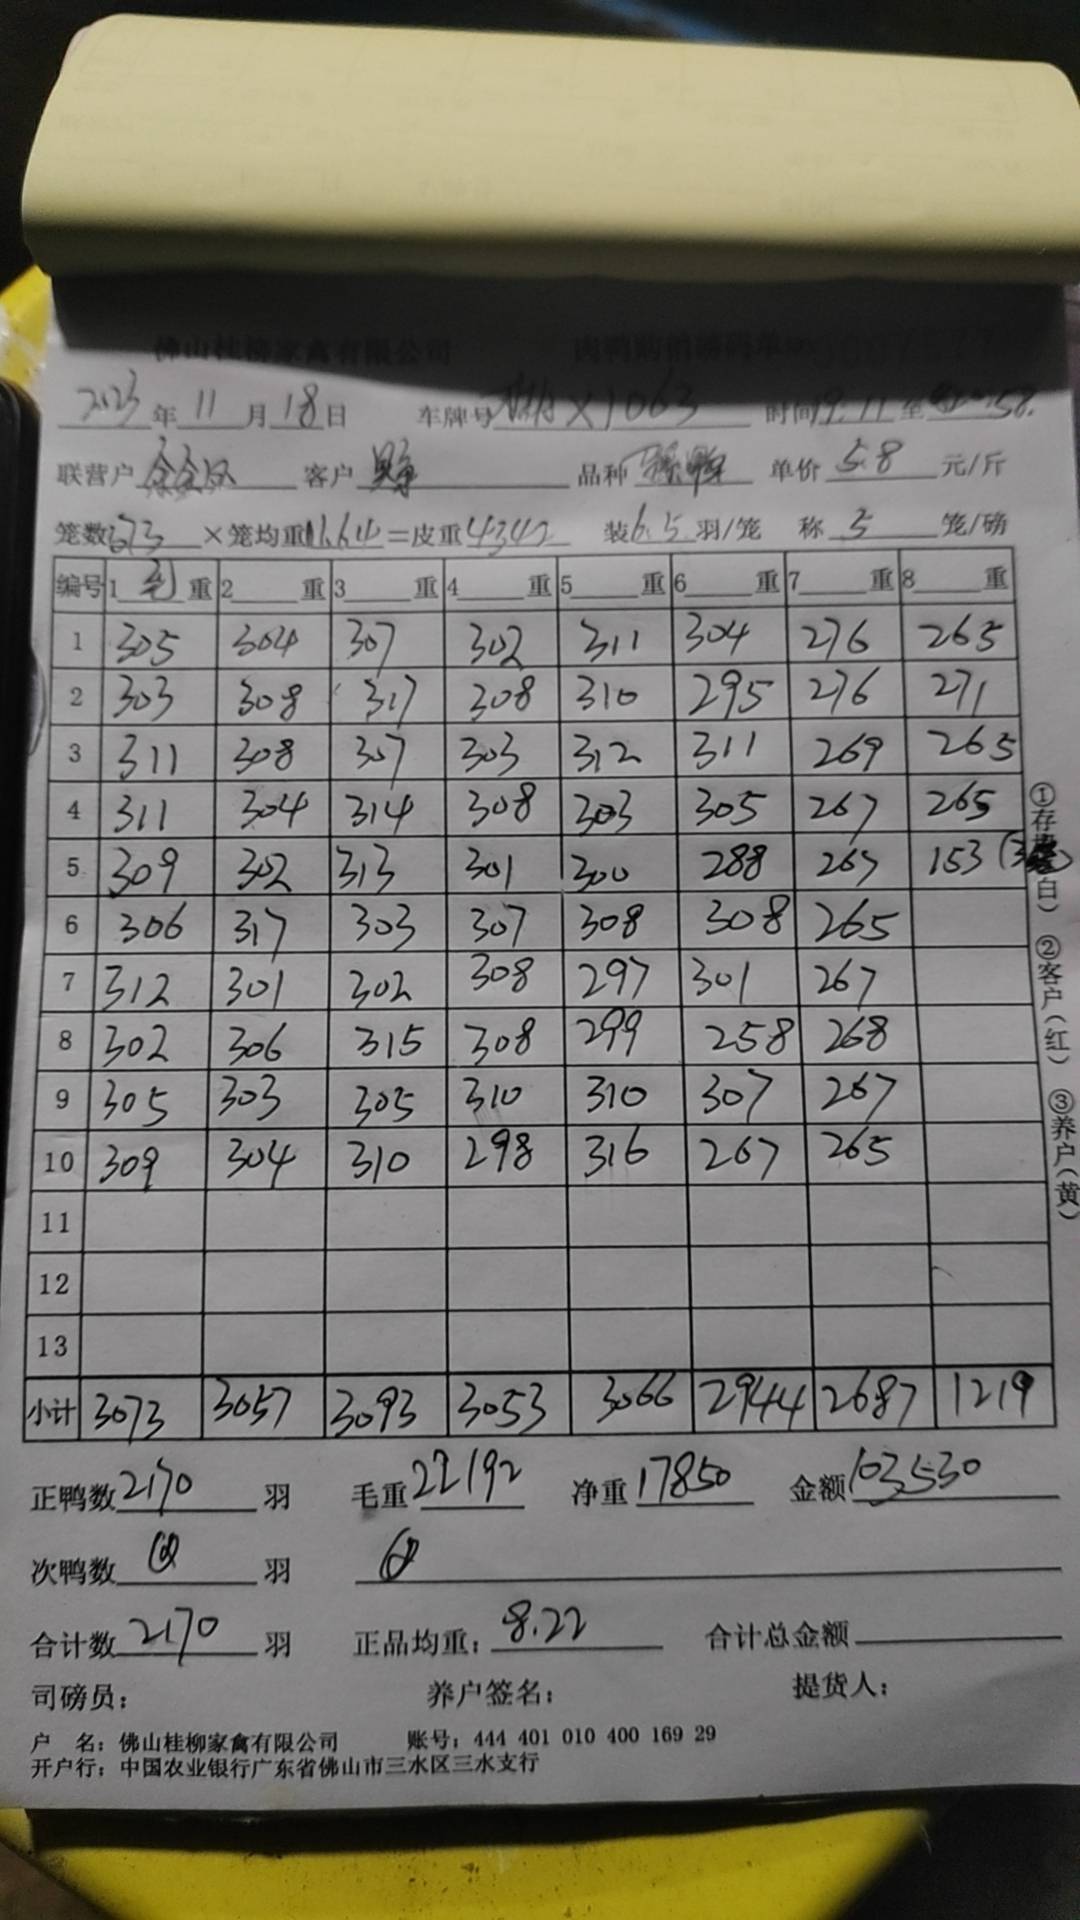 佛山桂柳家禽有限公司 肉鸭购销磅码单
2023年11月18日 车牌号 X1063 时间19:11至 :58.
联营户 客户 品种 单价5.8元/斤
笼数373×笼均重11.64=皮重4342 装6.5羽/笼 称5笼/磅
编号 1毛重 2重 3重 4重 5重 6重 7重 8重
1 305 304 307 302 311 304 276 265
2 303 308 317 308 310 295 276 271
3 311 308 307 303 312 311 269 265
4 311 304 314 308 303 305 267 265
5 309 302 313 301 300 288 267 153
6 306 317 303 307 308 308 265
7 312 301 302 308 297 301 267
8 302 306 315 308 299 258 268
9 305 303 305 310 310 307 267
10 309 304 310 298 316 267 265
11
12
13
小计 3073 3057 3093 3053 3066 2944 2687 1219
①存根(白) ②客户(红) ③养户(黄)
正鸭数2170羽 毛重22192 净重17850 金额103530
次鸭数 羽
合计数2170羽 正品均重:8.22 合计总金额
司磅员: 养户签名: 提货人:
户 名:佛山桂柳家禽有限公司 账号:444 401 010 400 169 29
开户行:中国农业银行广东省佛山市三水区三水支行